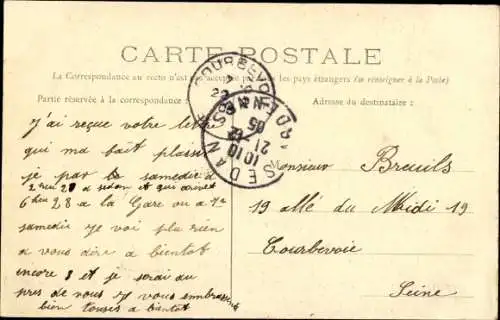 CARTE POSTALE
La Correspondance au recto n'est pas acceptée par tous les pays étrangers (se renseigner à la Poste)
Partie réservée à la correspondance :
Adresse du destinataire :
COURBEVOIE
SEDAN
ARDENNES
10 10
21 12
05
J'ai reçue votre lettre
qui ma fait plaisir
je par le samedi a
2 heu 20 a sedan et qui arrive
6 heu 28 a la Gare ou a 7
samedie je voi plu rien
a vous dire a bientot
encore 8 et je serai du
pres de vous je vous embrasse
bien touses a bientot
Monsieur Breuils
19 allé du Midi 19
Courbevoie
Seine